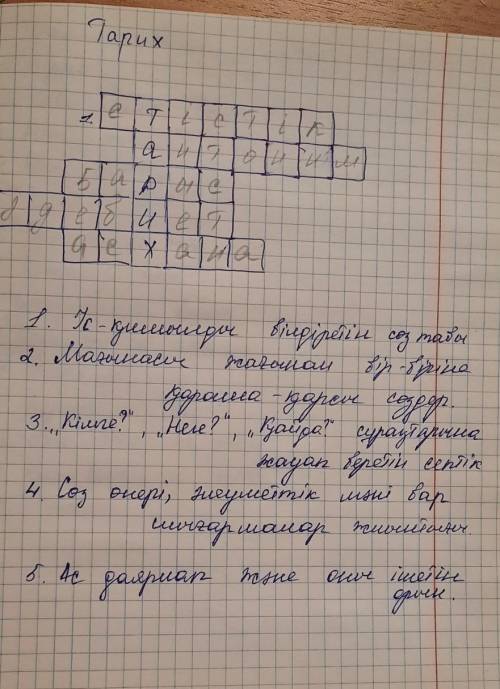 Тарих
1. етістік
антоним
барыс
әдебиет
асхана
1. Іс-қимылды білдіретін соз табы
2. Мағынасы жағынан бір-біріне
қарама-қарсы создер.
3. „Кімге?", „Неге?", „Қайда?" сұрақтарына
жауап беретін септік
4. Соз онері, әлеуметтік мәні бар
шығармалар жиынтығы.
5. Ас даярлап және оны ішетін
орын.